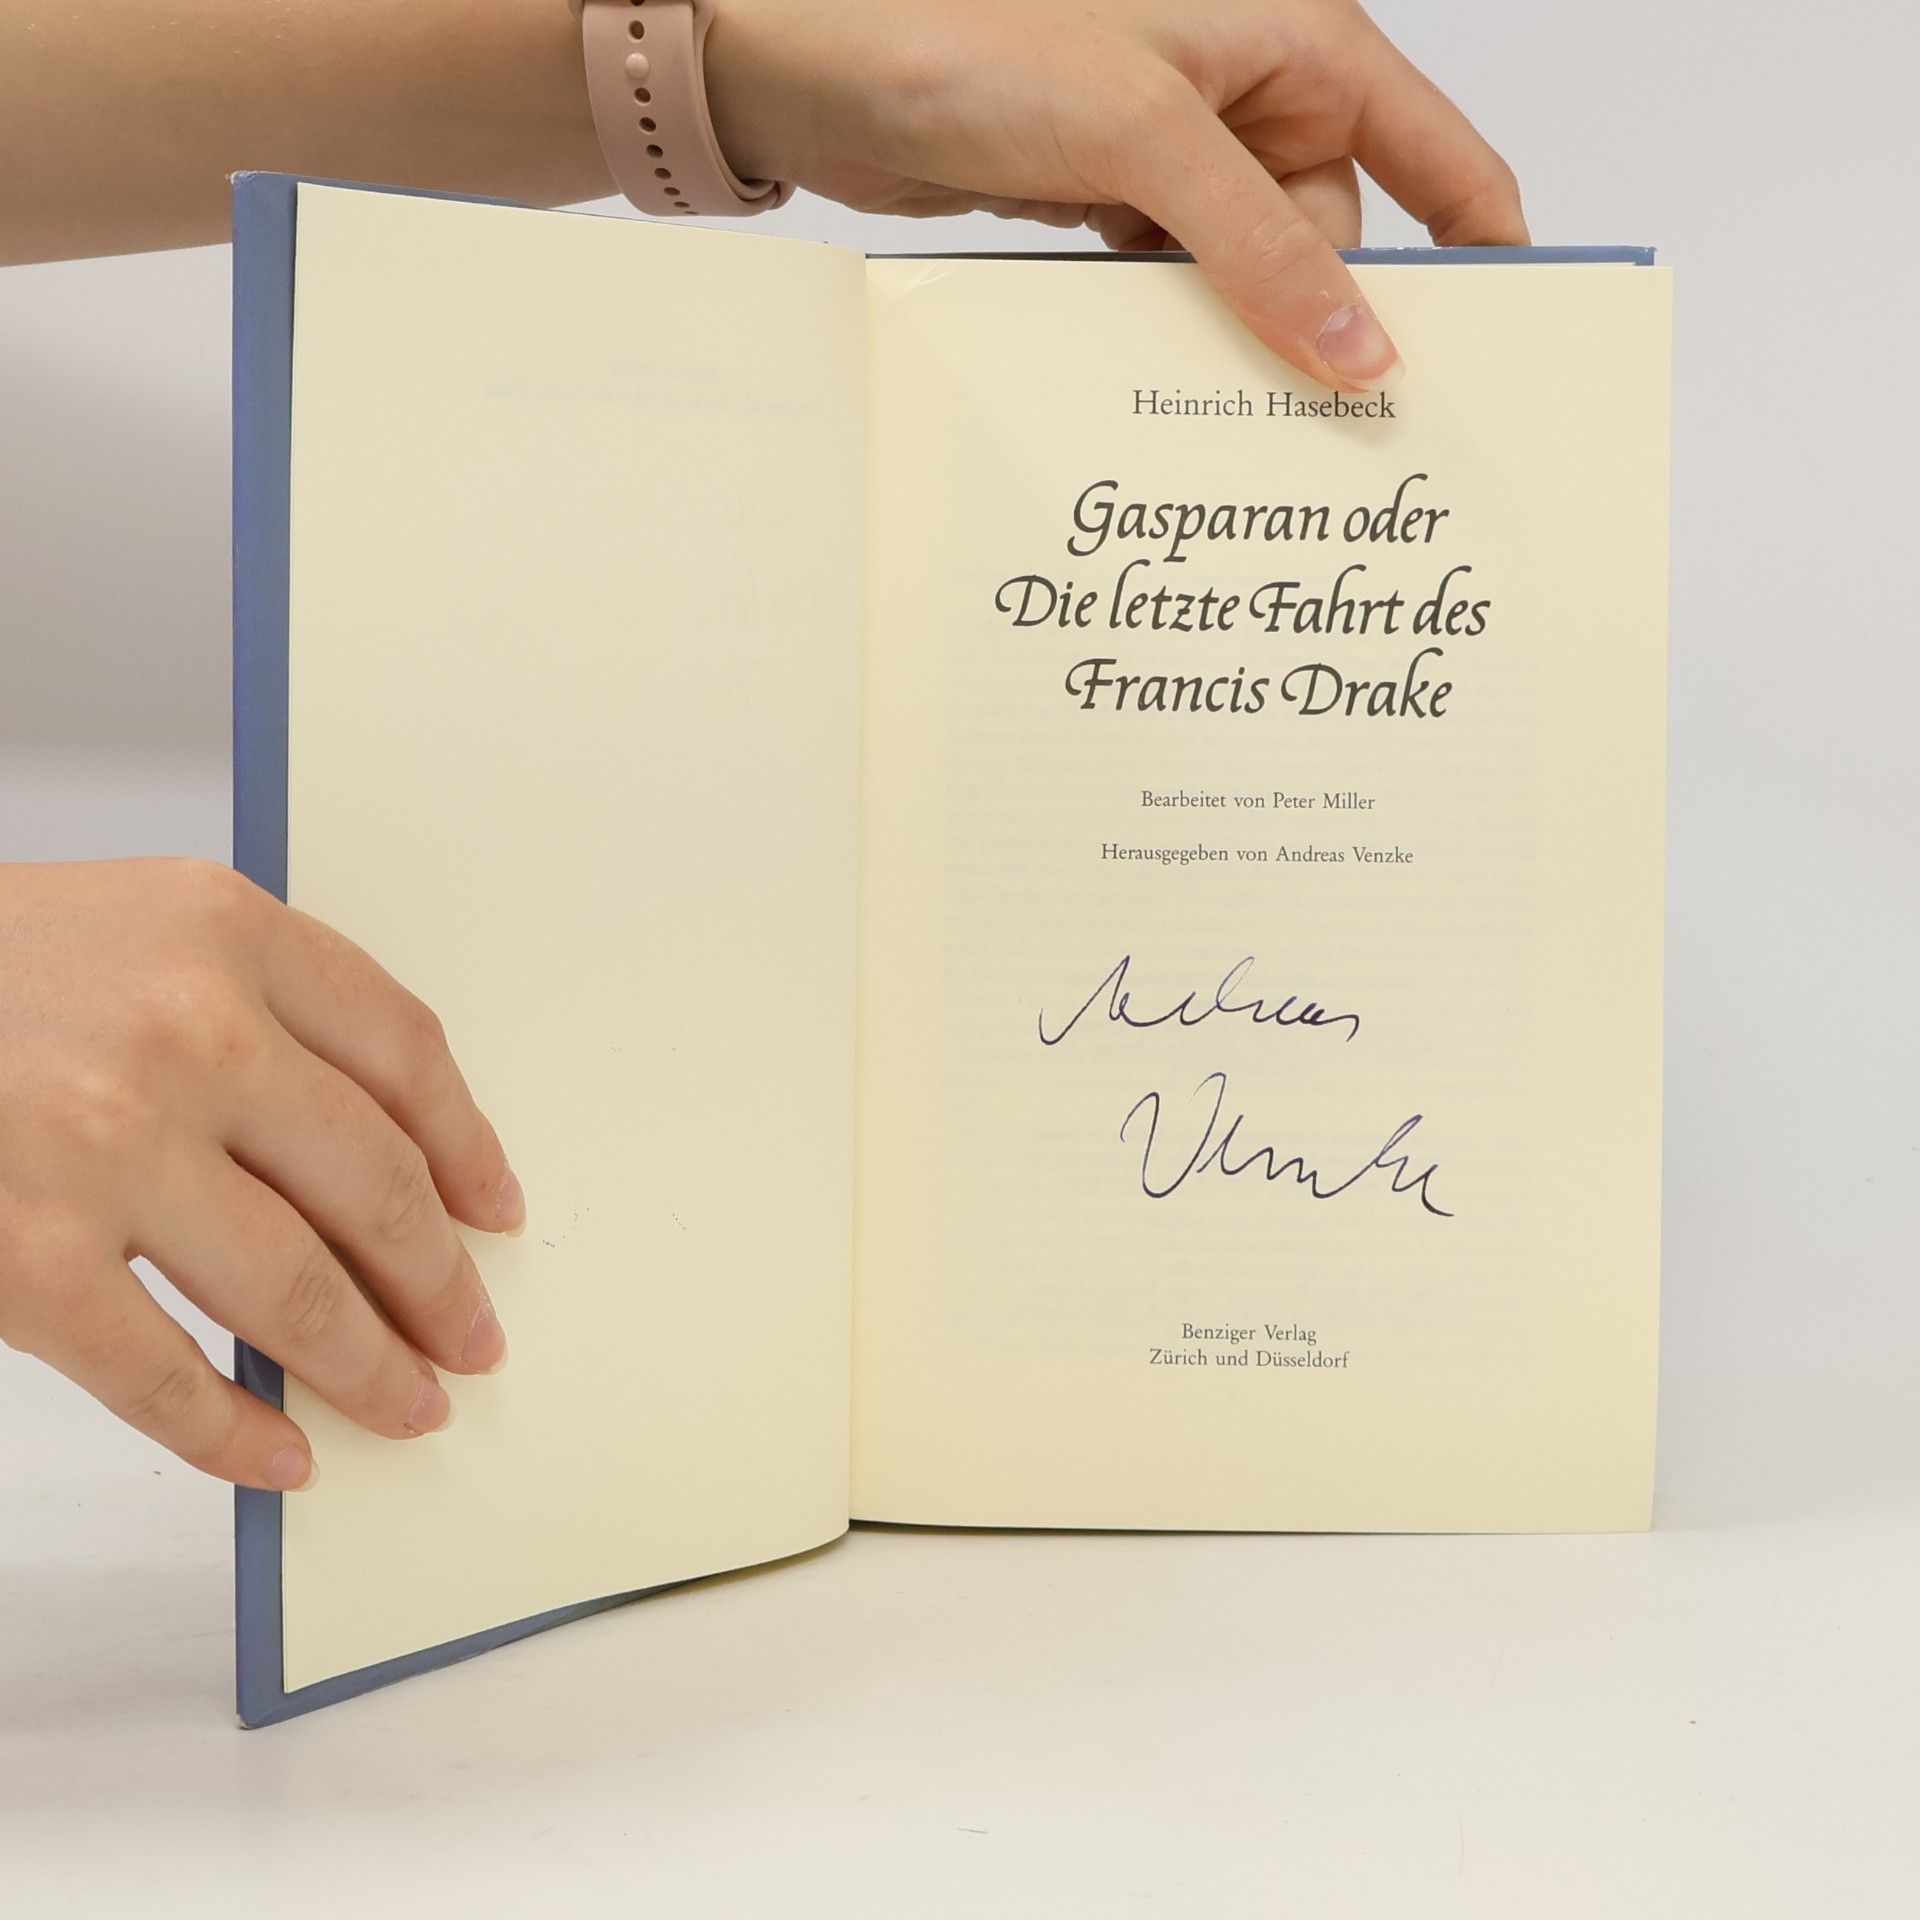 Heinrich Hasebeck
Gasparan oder
Die letzte Fahrt des
Francis Drake
Bearbeitet von Peter Miller
Herausgegeben von Andreas Venzke
Andreas
Venzke
Benziger Verlag
Zürich und Düsseldorf